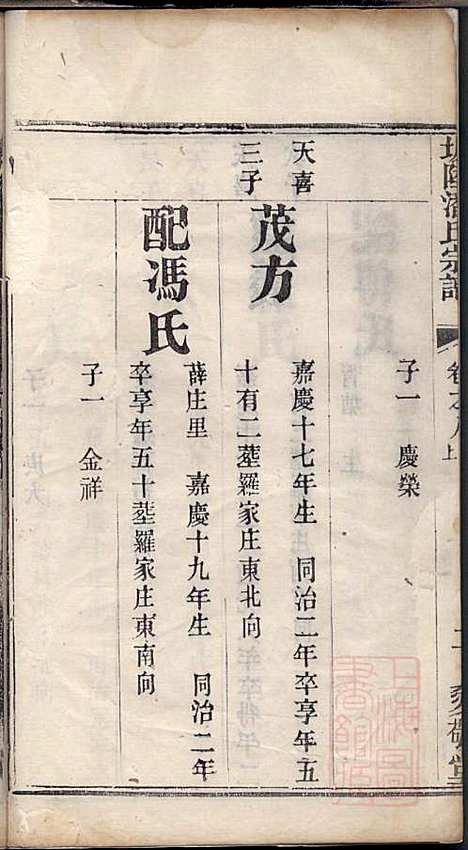 潘氏宗譜
卷之八上
二
敬堂
子一 慶榮
天喜
三子
茂方
嘉慶十七年生 同治二年卒享年五
十有二塟羅家庄東北向
配馮氏
薛庄里 嘉慶十九年生 同治二年
卒享年五十塟羅家庄東南向
子一 金祥
上海圖
書館藏